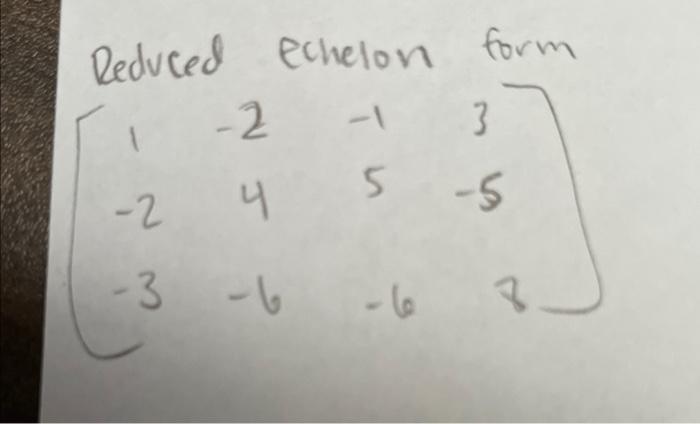 Reduced echelon form
1 -2 -1 3
-2 4 5 -5
-3 -6 -6 8